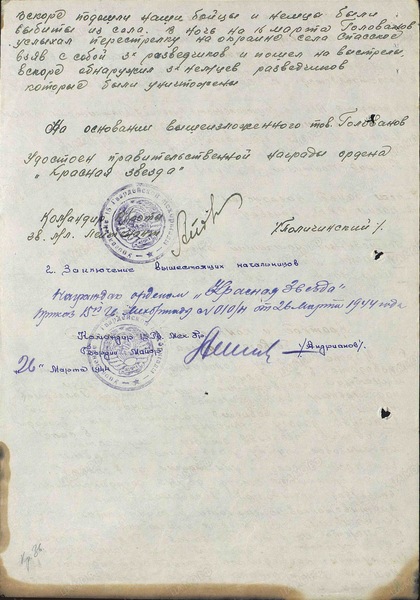 Вскоре подошли наши бойцы и немцы были
выбиты из села. В ночь на 16 марта Голованов
услыхал перестрелку на окраине села Спасское
взяв с собой 3х разведчиков и пошел на выстрелы
вскоре обнаружил 3х немцев разведчиков
которые были уничтожены
На основании вышеизложенного тов. Голованов
Удостоен правительственной награды ордена
„Красная Звезда"
Командир
Гв. Мл. Лейтенант /Боличинский/.
2. Заключение вышестоящих начальников
Награжден орденом „Красная Звезда"
Приказ 15 Гв. № 010/н от 26 марта 1944 года
Командир 15 Гв. Мех. Бр.
Гвардии Майор /Андрианов/.
„26" Марта 1944